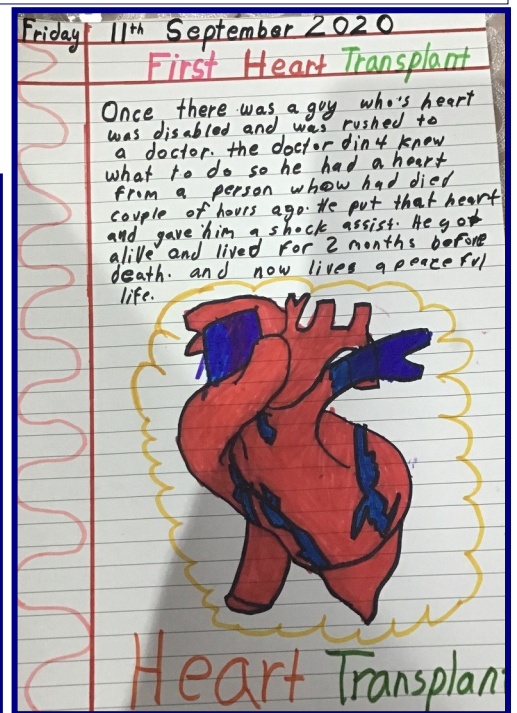 Friday 11th September 2020
First Heart Transplant
Once there was a guy who's heart
was disabled and was rushed to
a doctor. the doctor din't know
what to do so he had a heart
from a person whow had died
couple of hours ago. He put that heart
and gave him a shock assist. He got
alive and lived for 2 months before
death. and now lives a peaceful
life.
Heart Transplan